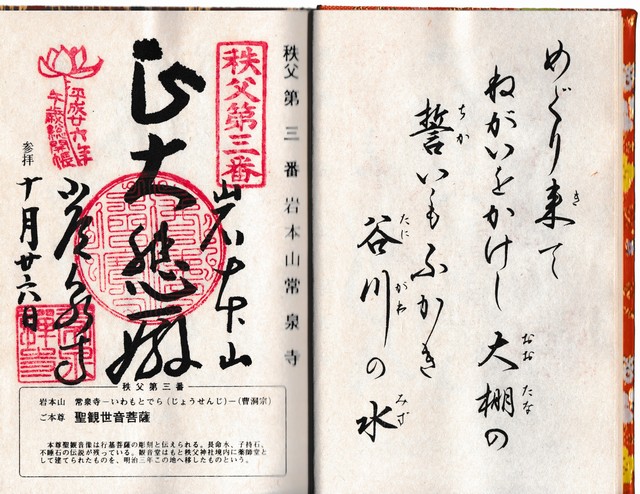 めぐり来て
き
ねがいをかけし 大棚の
おお たな
誓いもふかき
ちか
谷川の水
たに がわ みず
秩父第三番 岩本山 常泉寺
秩父第三番
岩本山
大悲殿
平成廿六年
午歳総開帳
参拝
十月廿六日
秩父第三番
岩本山 常泉寺－いわもとでら（じょうせんじ）－（曹洞宗）
ご本尊 聖観世音菩薩
本尊聖観音像は行基菩薩の彫刻と伝えられる。長命水、子持石、
不睡石の伝説が残っている。観音堂はもと秩父神社境内に薬師堂と
して建てられたものを、明治三年この地へ移したものという。